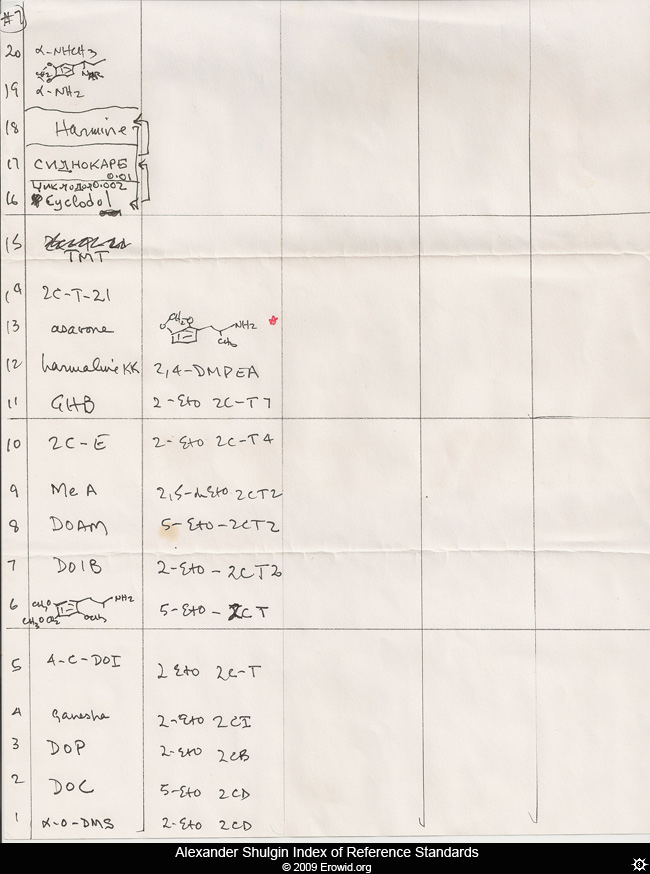 #7
20 α-NHCH3
19 α-NH2
18 Harmine
17 СИДНОКАРБ
0.01
Циклодол 0.002
16 Cyclodol
15 TMT
14 2C-T-21
13 asarone
CH2 O O NH2 CH3
12 harmaline KK 2,4-DMPEA
11 GHB 2-EtO 2C-T7
10 2C-E 2-EtO 2C-T4
9 MeA 2,5-diEtO 2CT2
8 DOAM 5-EtO-2CT2
7 DOIB 2-EtO-2CT2
6 CH3O NH2 5-EtO-2CT
OCH3
5 4-C-DOI 2 EtO 2C-T
4 Ganesha 2-EtO 2CI
3 DOP 2-EtO 2CB
2 DOC 5-EtO 2CD
1 α-O-DMS 2-EtO 2CD
Alexander Shulgin Index of Reference Standards
© 2009 Erowid.org